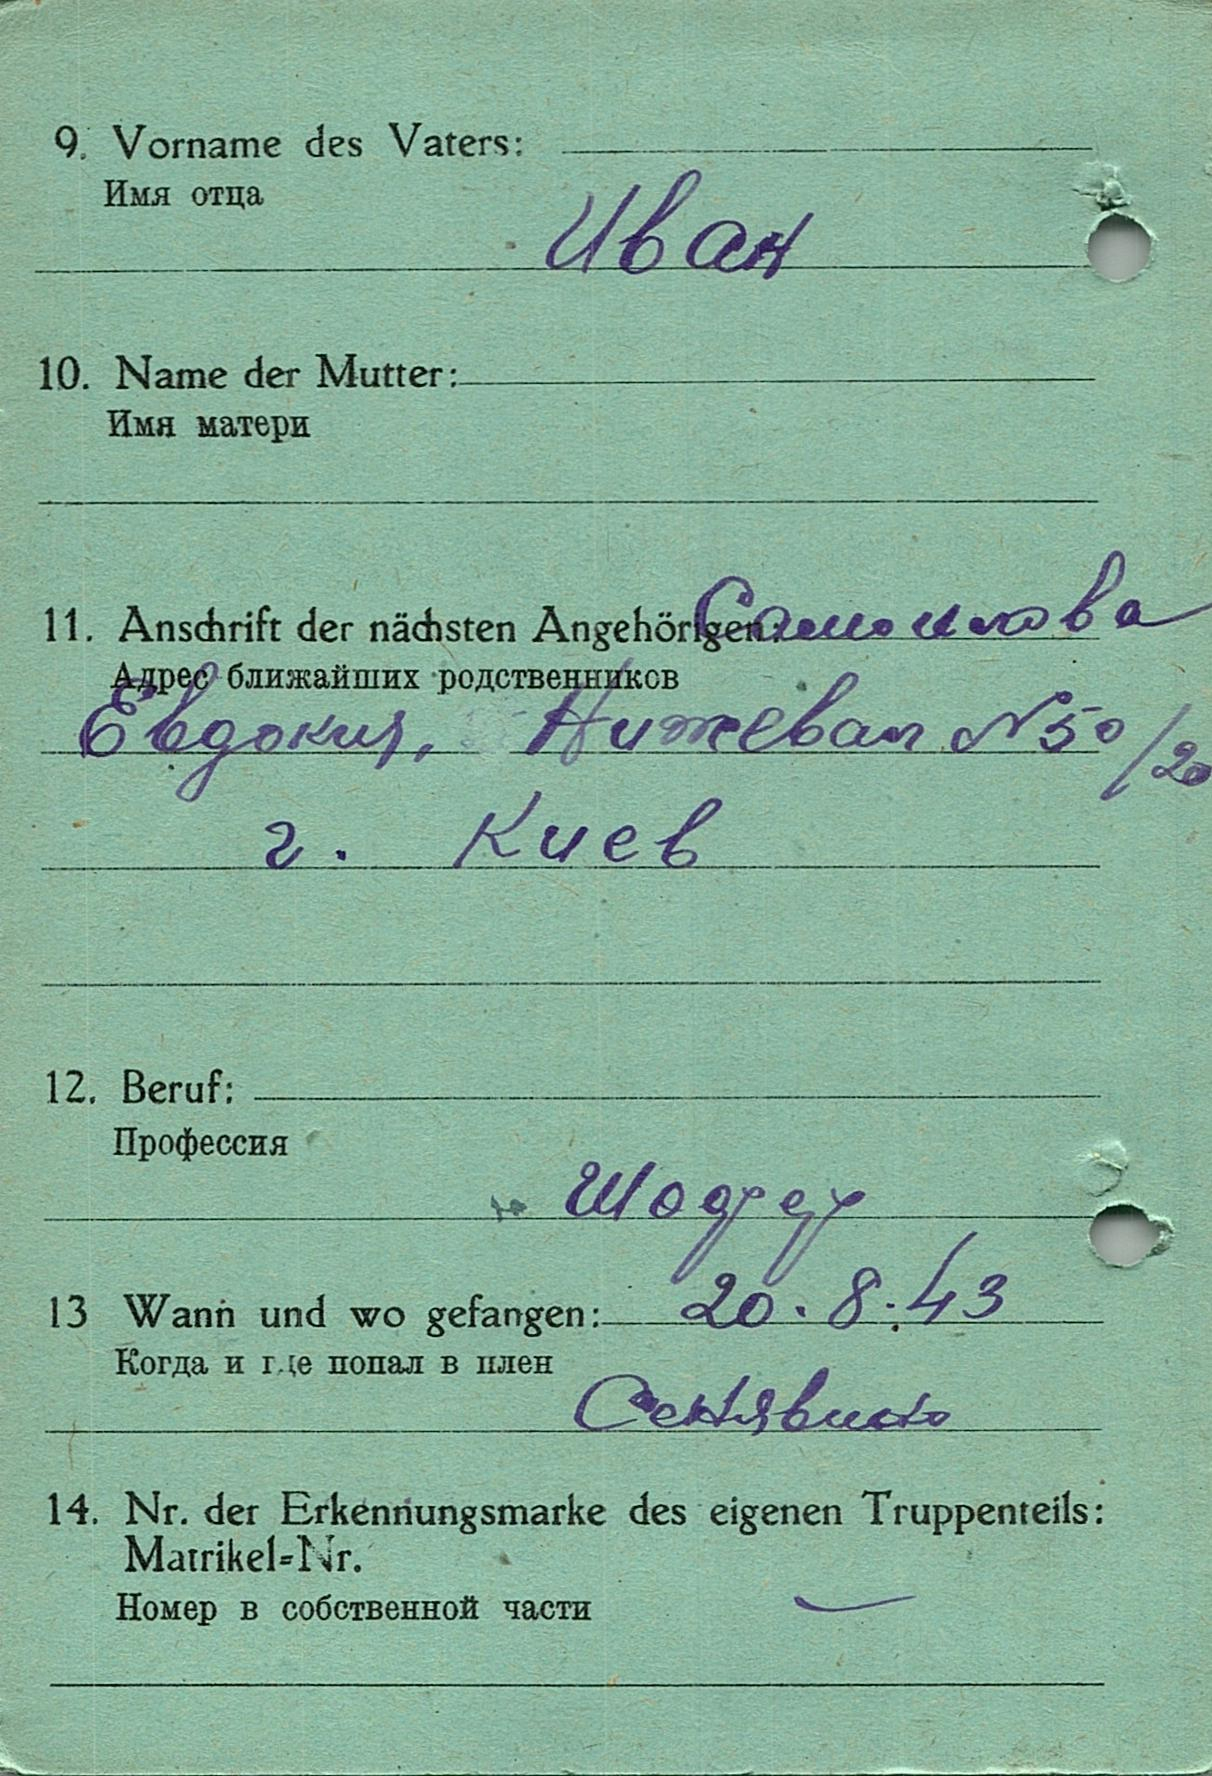 9. Vorname des Vaters:
Имя отца
Иван
10. Name der Mutter:
Имя матери
11. Anschrift der nächsten Angehörigen:
Адрес ближайших родственников
Евдокия, № 50/20
г. Киев
12. Beruf:
Профессия
Шофер
13 Wann und wo gefangen: 20.8.43
Когда и где попал в плен
Сенявино
14. Nr. der Erkennungsmarke des eigenen Truppenteils:
Matrikel=Nr.
Номер в собственной части
—